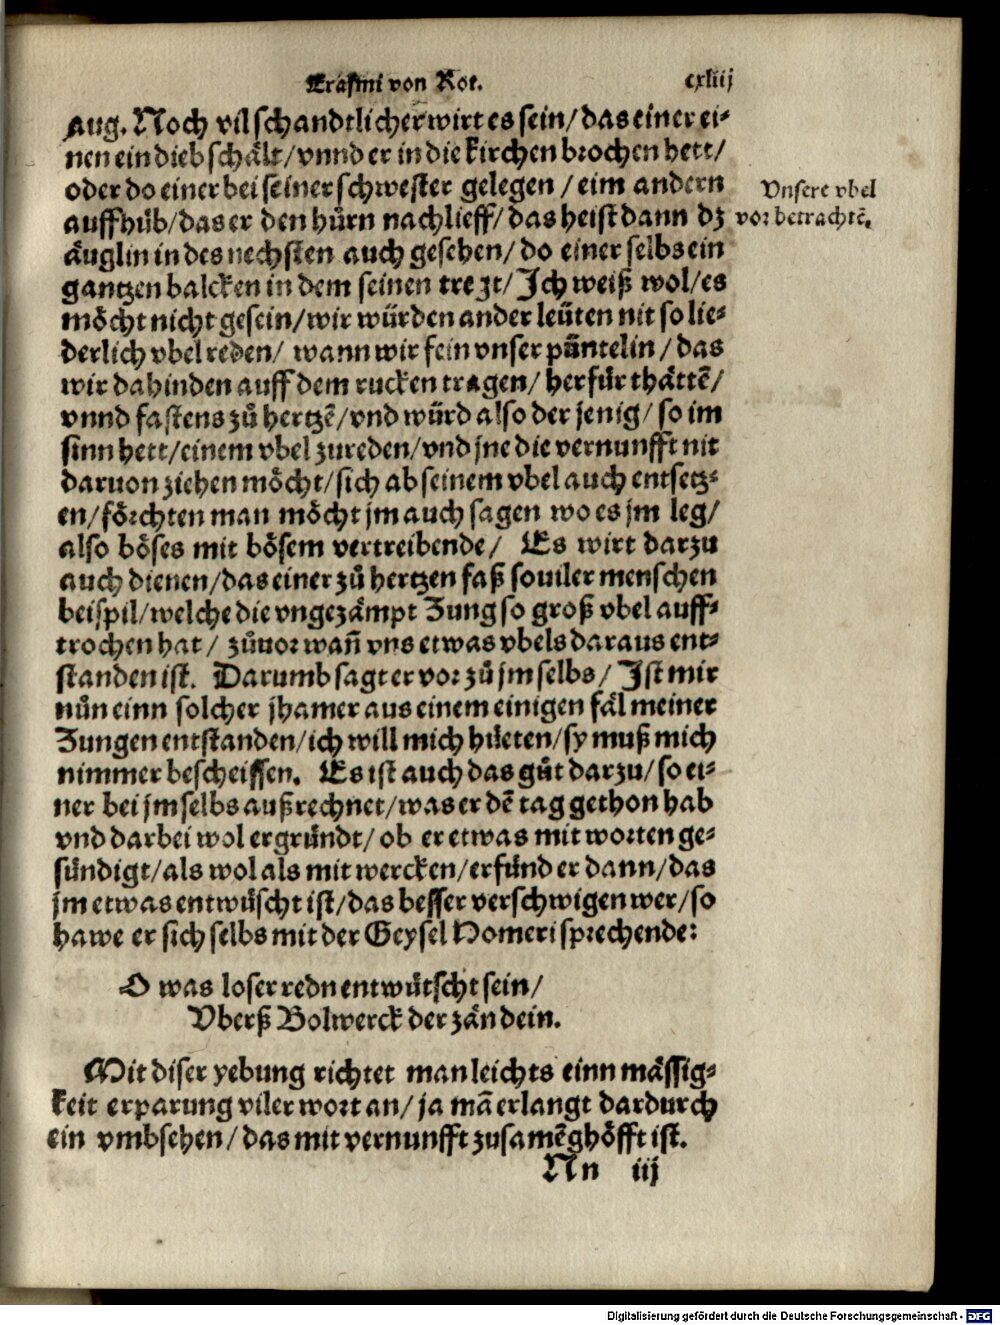 Erasmi von Rot. cxliij
Aug. Noch vil schandtlicher wirt es sein/ das einer ei⸗
nen ein dieb schält/ vnnd er in die kirchen brochen hett/
oder do einer bei seiner schwester gelegen / eim andern
auffhüb/ das er den hůrn nachlieff/ das heist dann dz
äuglin in des nechsten auch gesehen/ do einer selbs ein
gantzen balcken in dem seinen tregt/ Ich weiß wol/ es
möcht nicht gesein/ wir würden ander leüten nit so lie⸗
derlich vbel reden/ wann wir fein vnser püntelin / das
wir dahinden auff dem rucken tragen/ herfür thättē/
vnnd fastens zů hertzē/ vnd würd also der jenig/ so im
sinn hett/ einem vbel zureden/ vnd jne die vernunfft nit
daruon ziehen möcht/ sich ab seinem vbel auch entsetz⸗
en/ förchten man möcht jm auch sagen wo es jm leg/
also böses mit bösem vertreibende/ Es wirt darzu
auch dienen/ das einer zů hertzen faß souiler menschen
beispil/ welche die vngezämpt Zung so groß vbel auff⸗
trochen hat/ zůuor wañ vns etwas vbels daraus ent⸗
standen ist. Darumb sagt er vor zů jm selbs/ Ist mir
nůn einn solcher jhamer aus einem einigen fäl meiner
Zungen entstanden/ ich will mich hüeten/ sy muß mich
nimmer bescheissen. Es ist auch das gůt darzu/ so ei⸗
ner bei jm selbs außrechnet/ was er dē tag gethon hab
vnd darbei wol ergründt/ ob er etwas mit worten ge⸗
sündigt/ als wol als mit wercken/ erfünd er dann/ das
jm etwas entwüscht ist/ das besser verschwigen wer/ so
hawe er sich selbs mit der Geysel Homeri sprechende:
O was loser redn entwütscht sein/
Vberß Bolwerck der zän dein.
Mit diser yebung richtet man leichts einn mässig⸗
keit erparung viler wort an/ ja mā erlangt dardurch
ein vmbsehen/ das mit vernunfft zusamē ghöfft ist.
Nn iij
Vnsere vbel
vor betrachtē.
Digitalisierung gefördert durch die Deutsche Forschungsgemeinschaft - DFG